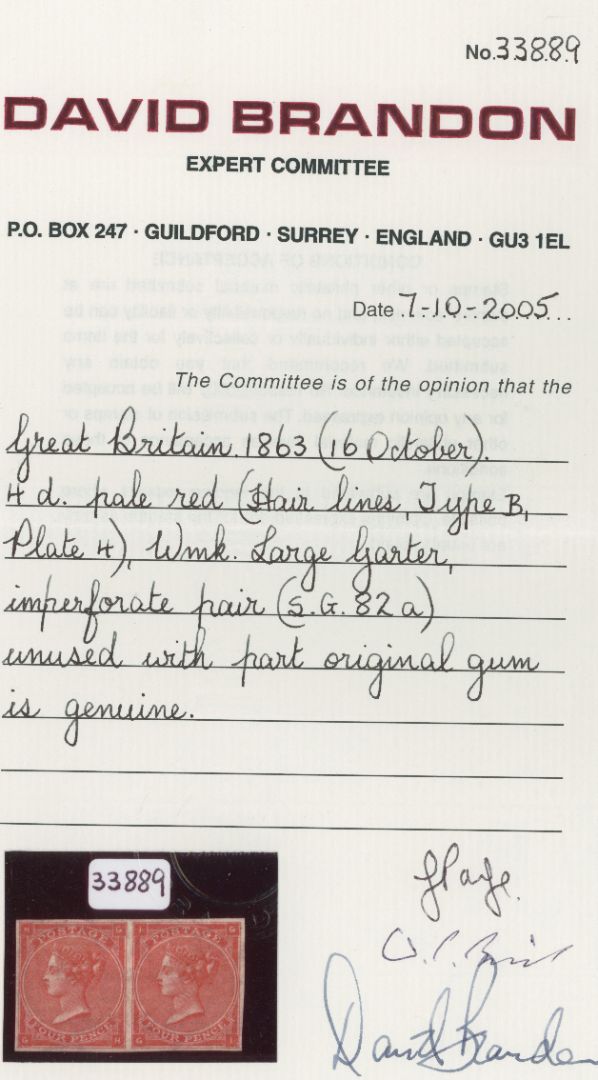 No. 33889
DAVID BRANDON
EXPERT COMMITTEE
P.O. BOX 247 · GUILDFORD · SURREY · ENGLAND · GU3 1EL
Date 7-10-2005
The Committee is of the opinion that the
Great Britain. 1863 (16 October).
4 d. pale red (Hair lines, Type B,
Plate 4), Wmk. Large Garter,
imperforate pair (S.G. 82 a)
unused with part original gum
is genuine.
33889
POSTAGE POSTAGE
FOUR PENCE FOUR PENCE
David Brandon